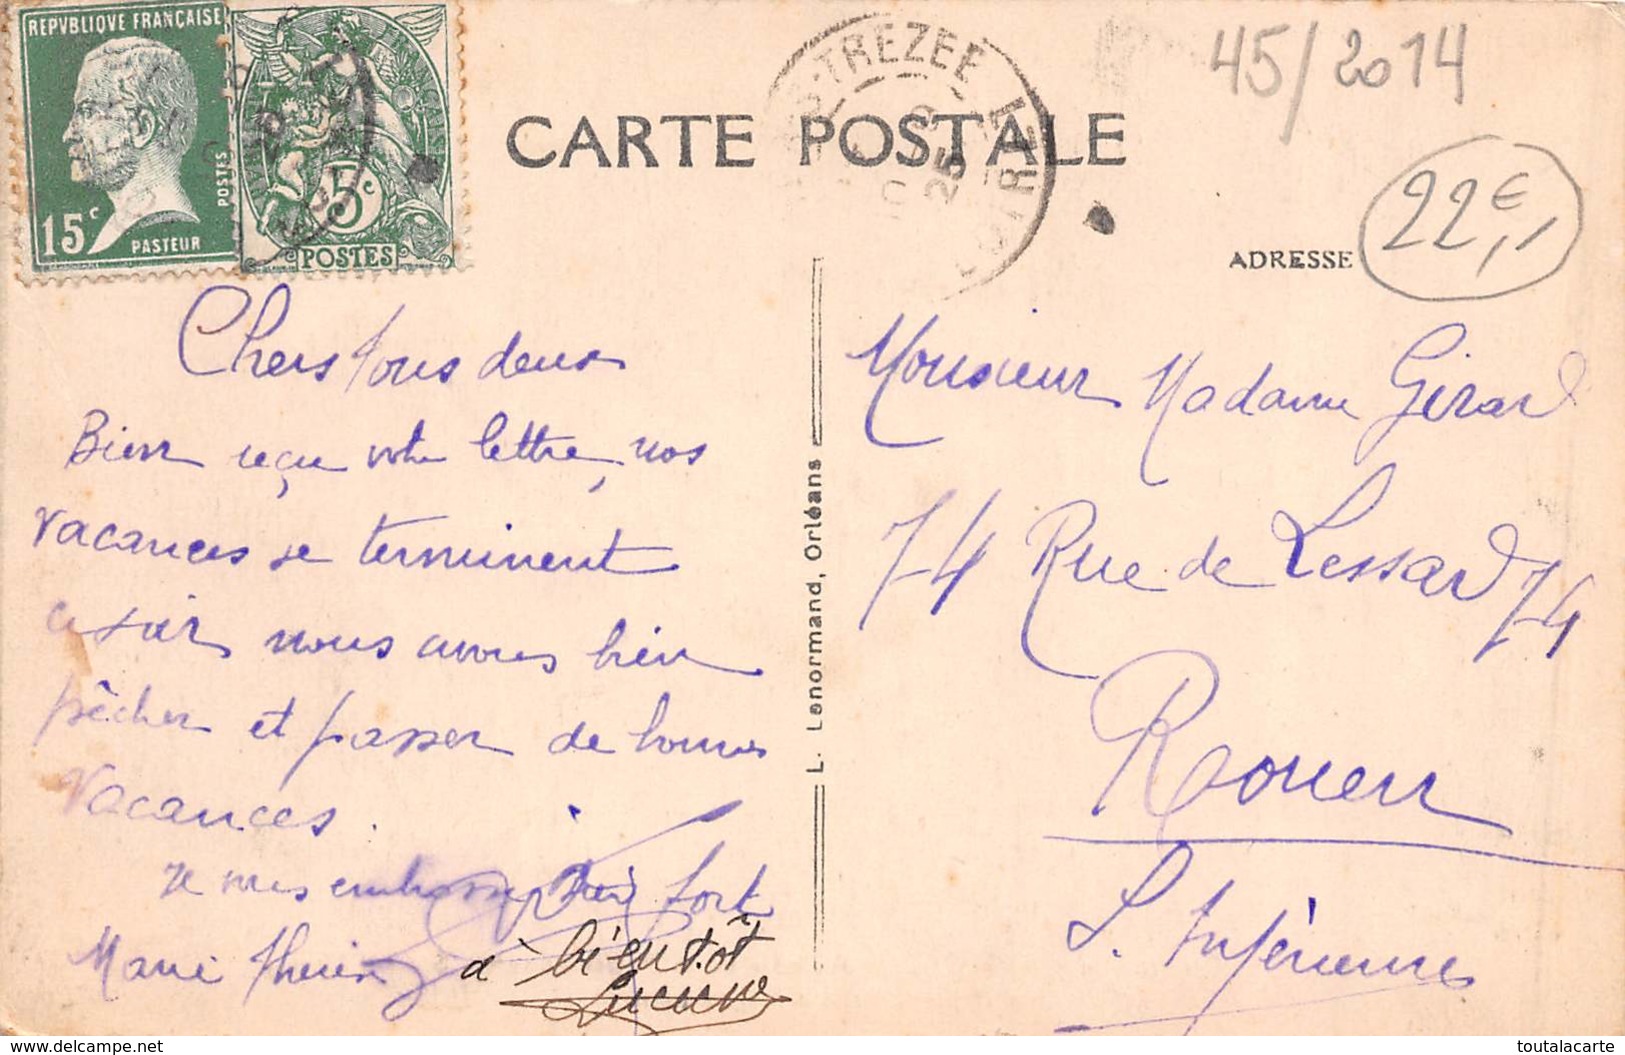 REPVBLIQVE FRANÇAISE
15c
POSTES
PASTEUR
5c
POSTES
TREZEE
LOIRET
25
45/2014
CARTE POSTALE
22€
ADRESSE
Chers tous deux
Bien reçu votre lettre, nos
vacances se terminent
ce soir nous avons bien
pêcher et passer de bonnes
vacances.
Je vous embrasse bien fort
Marie
à bientôt
Lucienne
L. Lenormand, Orléans
Monsieur Madame Girard
74 Rue de Lessard 74
Rouen
S. Inférieure
www.delcampe.net
toutalacarte